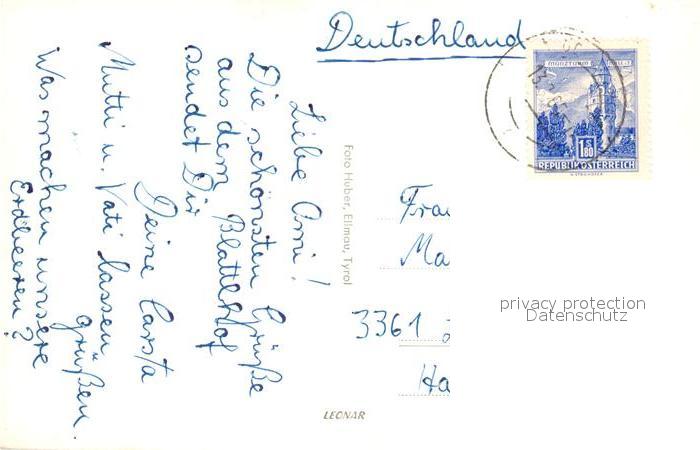 Liebe Omi!
Die schönsten Grüße
aus dem Blattlhof
sendet Dir
Deine Carsta
Mutti u. Vati lassen
grüßen.
Was machen unsere
Erdbeeren?
Foto Huber, Ellmau, Tyrol
LEONAR
Deutschland
MÜNZTURM HALL i. T.
1.80
REPUBLIK ÖSTERREICH
Frau
Ma
3361
Ha
privacy protection
Datenschutz